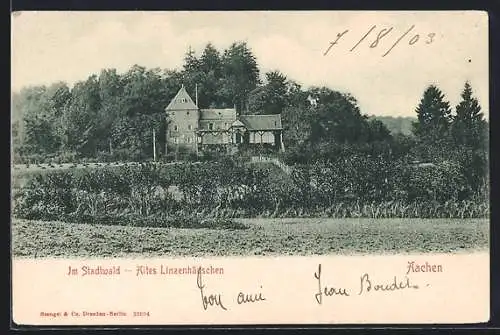 7/8/03
Im Stadtwald – Altes Linzenhäuschen
Aachen
ton ami Jean Boudet.
Stengel & Co. Dresden-Berlin.